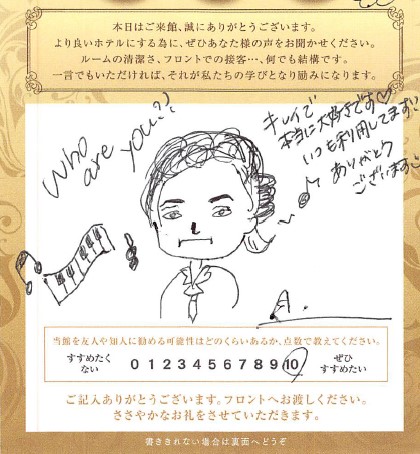 本日はご来館、誠にありがとうございます。
より良いホテルにする為に、ぜひあなた様の声をお聞かせください。
ルームの清潔さ、フロントでの接客…、何でも結構です。
一言でもいただければ、それが私たちの学びとなり励みになります。
Who
are
you??
キレイで
本当に大好きです♡
いつも利用してます♪
ありがとう
ございます♪
A.
当館を友人や知人に勧める可能性はどのくらいあるか、点数で教えてください。
すすめたくない 0 1 2 3 4 5 6 7 8 9 10 ぜひすすめたい
ご記入ありがとうございます。フロントへお渡しください。
ささやかなお礼をさせていただきます。
書ききれない場合は裏面へどうぞ